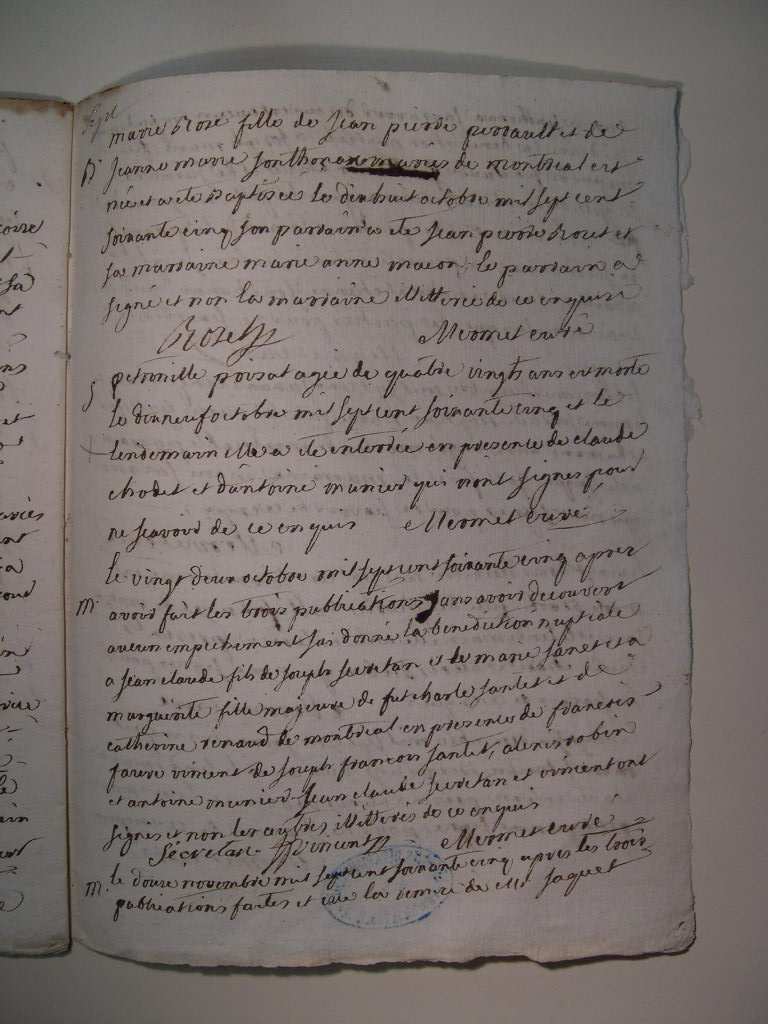 marie Rose fille de Jean pierre perrault et de
B. Jeanne marie sonthona mariés de montreal est
née et a ete Baptisée le dixhuit octobre mil sept cent
soixante cinq son parrain a ete Jean pierre Roset et
sa marraine marie anne macon, le parrain a
signé et non la marraine illiterée de ce enquise
Roset Mermet curé
S petronille poisat agée de quatre vingts ans est morte
le dixneuf octobre mil sept cent soixante cinq et le
lendemain elle a ete enterrée en presence de claude
chodet et d'antoine munier qui n'ont signes pour
ne scavoir de ce enquis Mermet curé
le vingt deux octobre mil sept cent soixante cinq apres
M. avoir fait les trois publications sans avoir decouvert
aucun empechement j'ai donné la benediction nuptiale
a Jean claude fils de Joseph Secretan et de marie Janet et a
marguerite fille majeure de fut charle Jantet et de
catherine renaud de montreal en presence de francois
favre vincent de Joseph francois Jantet, alexis robin
et antoine munier Jean claude Secretan et vincent ont
signés et non les autres illiterés de ce enquis
Sécretan Vincent Mermet curé
M. le douze novembre mil sept cent soixante cinq apres les trois
publications faites et vue la remise de Mr Jaquet